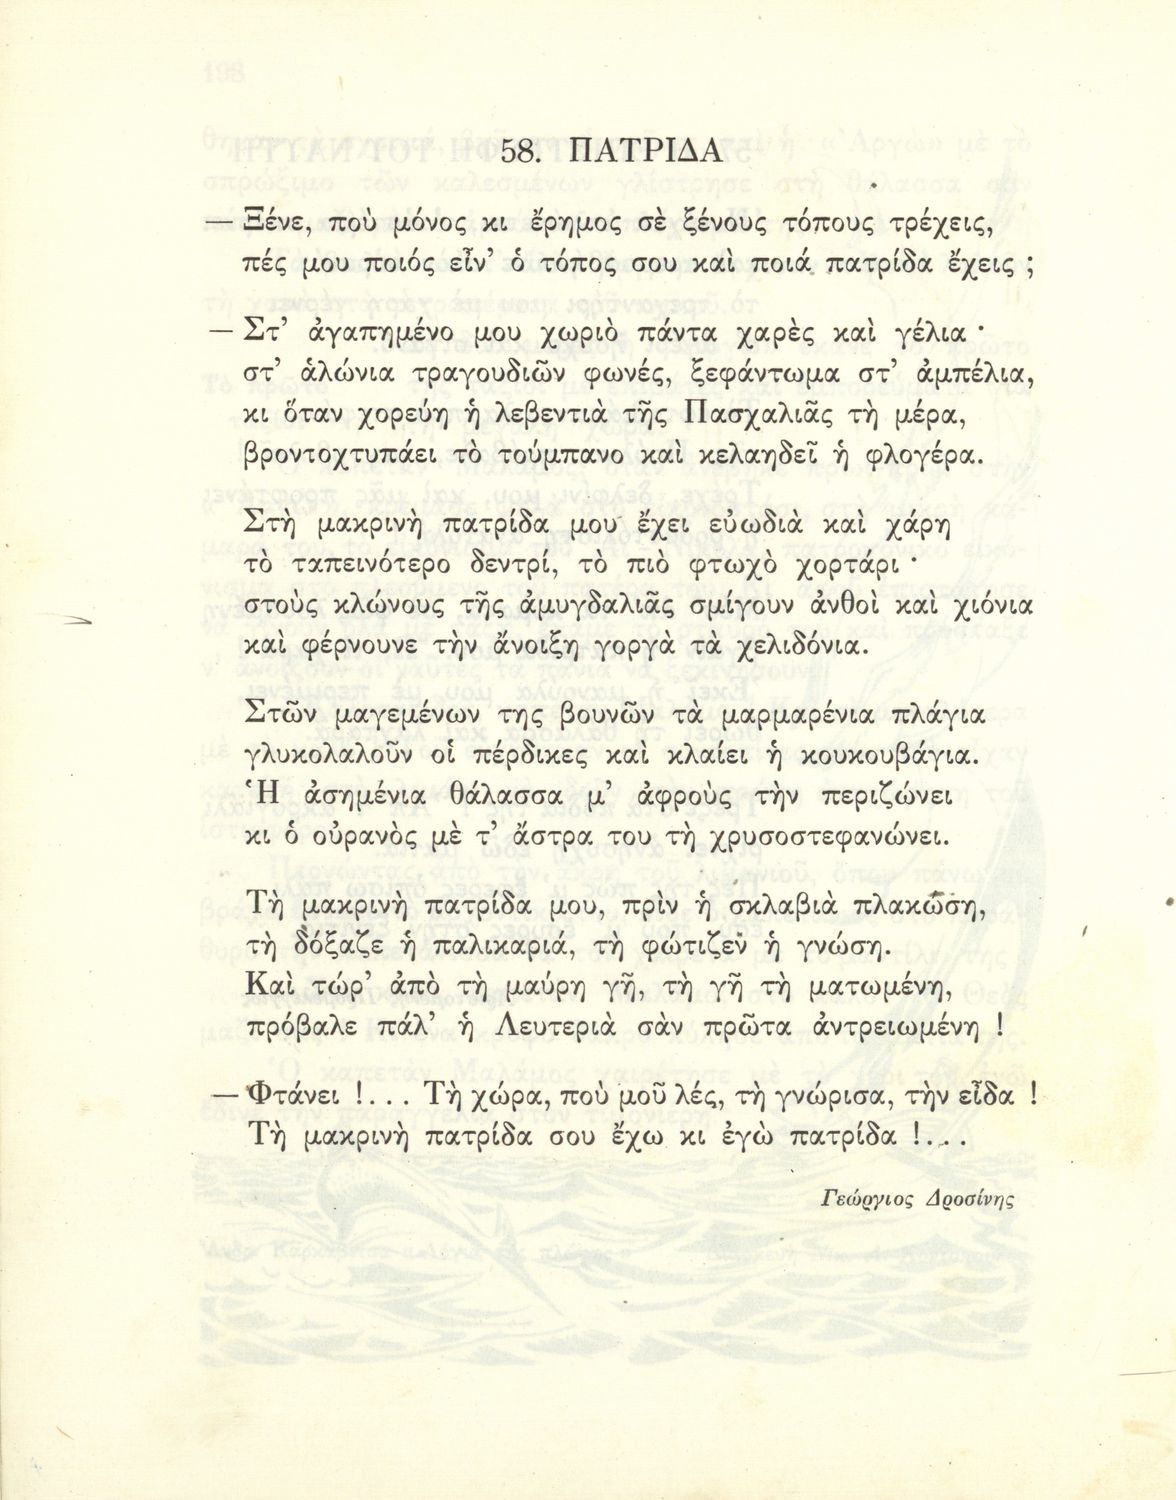 58. ΠΑΤΡΙΔΑ
— Ξένε, ποὺ μόνος κι ἔρημος σὲ ξένους τόπους τρέχεις,
πές μου ποιός εἶν' ὁ τόπος σου καὶ ποιά πατρίδα ἔχεις ;
— Στ' ἀγαπημένο μου χωριὸ πάντα χαρὲς καὶ γέλια ·
στ' ἁλώνια τραγουδιῶν φωνές, ξεφάντωμα στ' ἀμπέλια,
κι ὅταν χορεύη ἡ λεβεντιὰ τῆς Πασχαλιᾶς τὴ μέρα,
βροντοχτυπάει τὸ τούμπανο καὶ κελαηδεῖ ἡ φλογέρα.
Στὴ μακρινὴ πατρίδα μου ἔχει εὐωδιὰ καὶ χάρη
τὸ ταπεινότερο δεντρί, τὸ πιὸ φτωχὸ χορτάρι ·
στοὺς κλώνους τῆς ἀμυγδαλιᾶς σμίγουν ἀνθοὶ καὶ χιόνια
καὶ φέρνουνε τὴν ἄνοιξη γοργὰ τὰ χελιδόνια.
Στῶν μαγεμένων της βουνῶν τὰ μαρμαρένια πλάγια
γλυκολαλοῦν οἱ πέρδικες καὶ κλαίει ἡ κουκουβάγια.
Ἡ ἀσημένια θάλασσα μ' ἀφροὺς τὴν περιζώνει
κι ὁ οὐρανὸς μὲ τ' ἄστρα του τὴ χρυσοστεφανώνει.
Τὴ μακρινὴ πατρίδα μου, πρὶν ἡ σκλαβιὰ πλακώση,
τὴ δόξαζε ἡ παλικαριά, τὴ φώτιζεν ἡ γνώση.
Καὶ τώρ' ἀπὸ τὴ μαύρη γῆ, τὴ γῆ τὴ ματωμένη,
πρόβαλε πάλ' ἡ Λευτεριὰ σὰν πρῶτα ἀντρειωμένη !
— Φτάνει !... Τὴ χώρα, ποὺ μοῦ λές, τὴ γνώρισα, τὴν εἶδα !
Τὴ μακρινὴ πατρίδα σου ἔχω κι ἐγὼ πατρίδα !...
Γεώργιος Δροσίνης